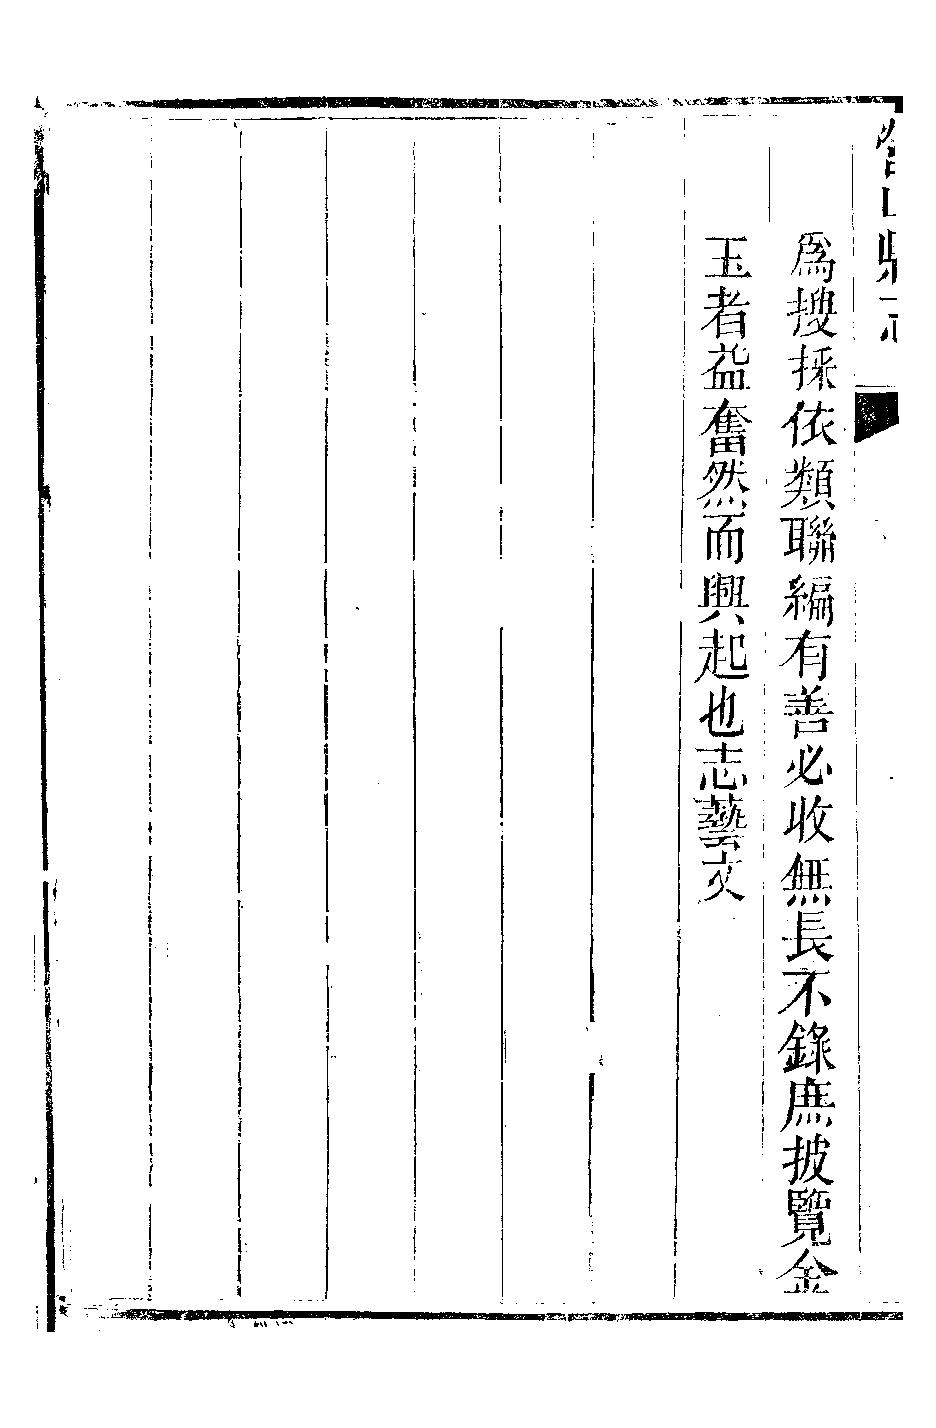 爲搜採依類聯編有善必收無長不錄庶披覽金
玉者益奮然而興起也志藝文